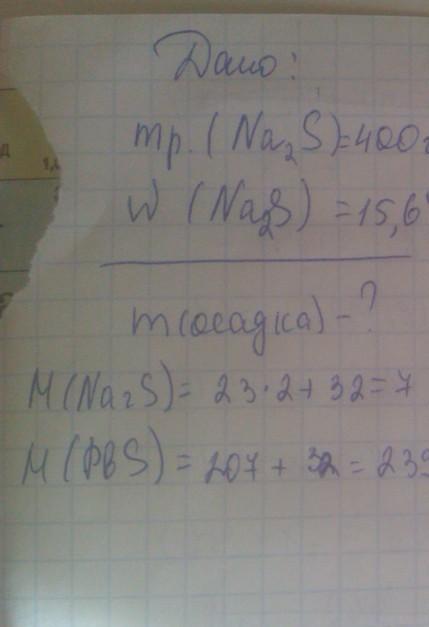 Дано:
mр. (Na₂S)=400г
W (Na₂S) = 15,6%
m(осадка) - ?
M(Na₂S) = 23·2 + 32 = 7
M(PbS) = 207 + 32 = 239